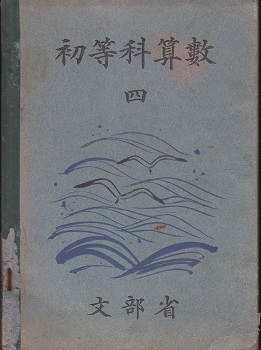 初等科算數
四
文部省